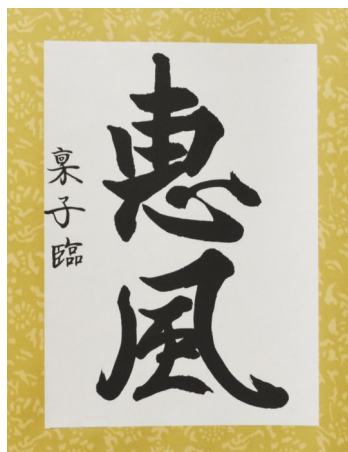 恵風
稟子臨